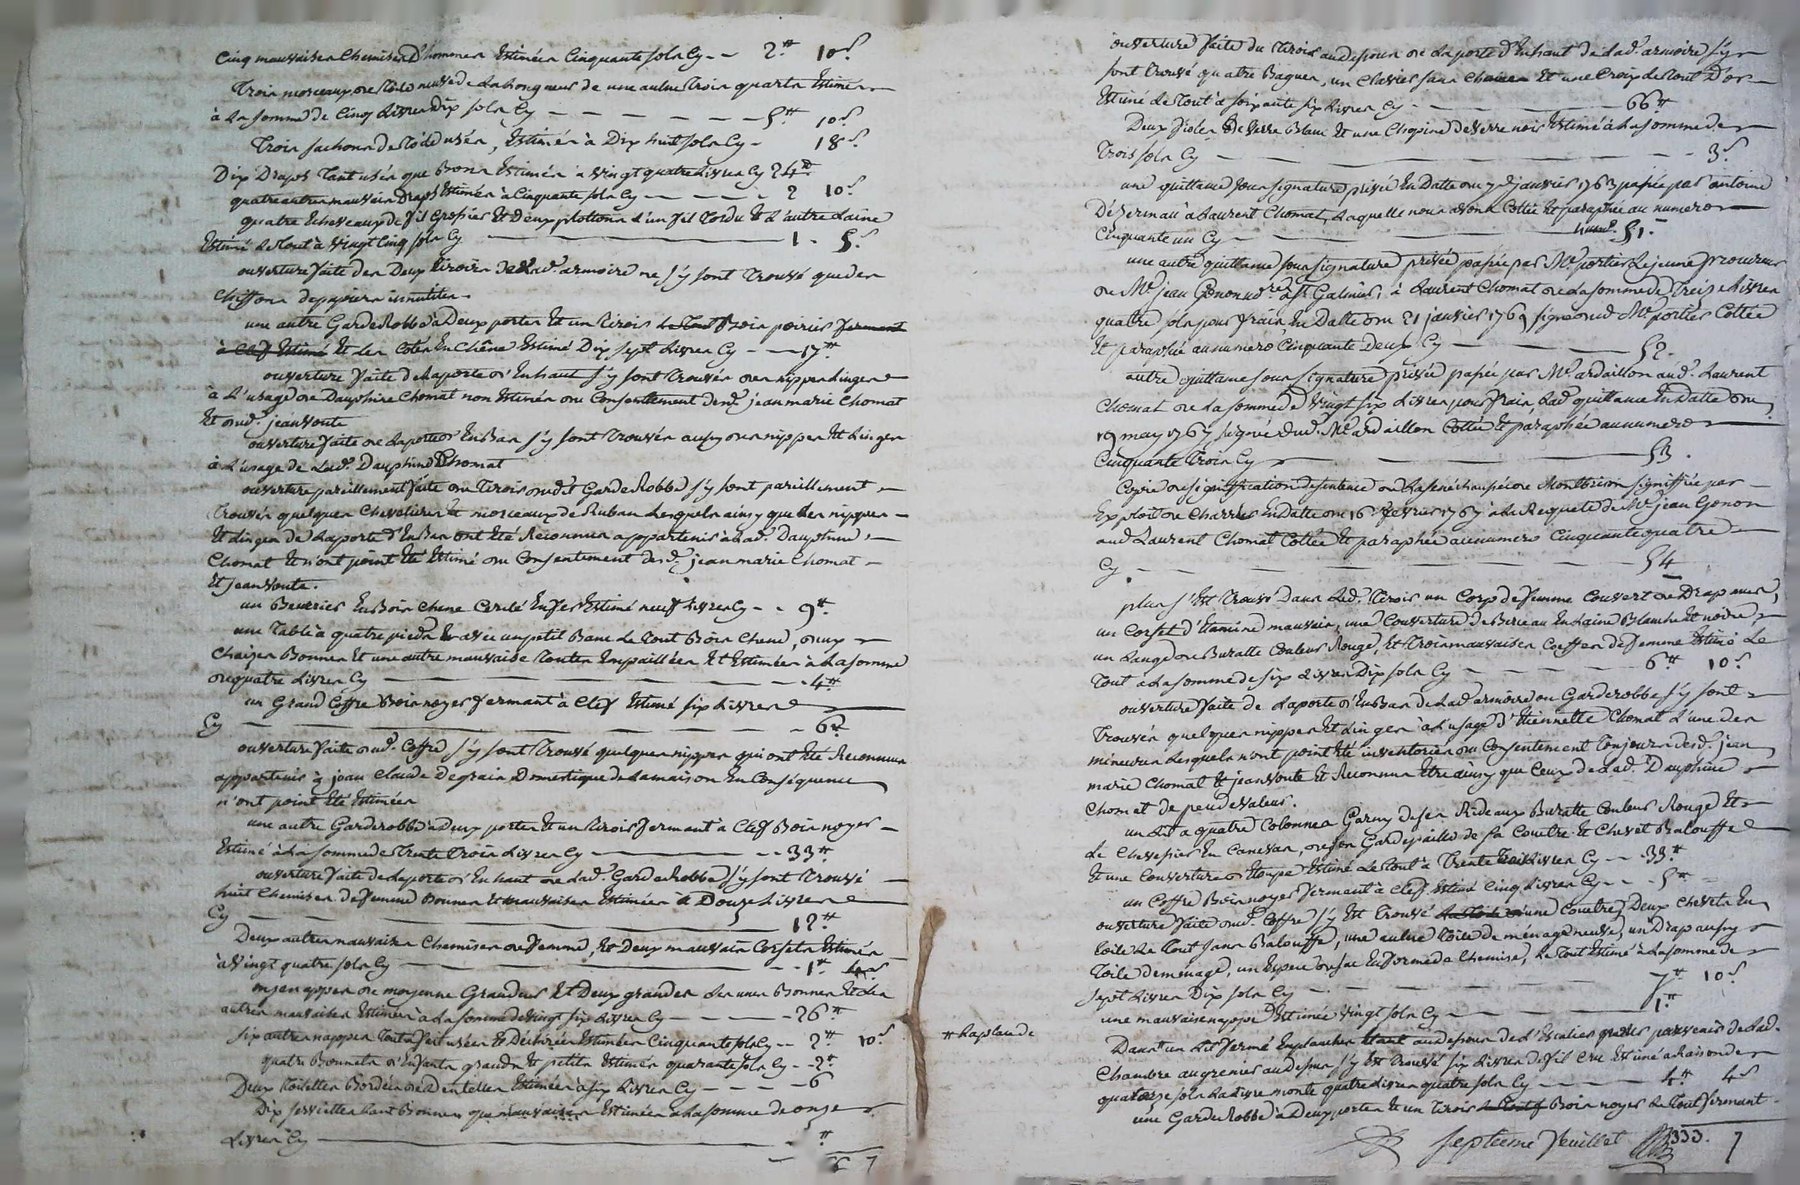 Cinq mauvaises Chemises D'hommes Estimées Cinquante sols Cy - 2# 10s
Trois morceaux de toile neuve de la longueur de une aulne trois quarts Estimés
à la somme de Cinq Livres Dix sols Cy - 5# 10s
Trois sachons de toile usés, Estimés à Dix huit sols Cy - 18s
Dix Draps tant usés que Bons Estimés à vingt quatre Livres Cy 24#
quatre autres mauvais Draps Estimés à Cinquante sols Cy - 2 10s
quatre Echeveaux de fil Grossier Et Deux plotions l'un fil tordu Et l'autre Laine
Estimé le tout à vingt Cinq sols Cy - 1 - 5s
ouverture faite des Deux tiroirs de Lad. armoire ne s'y sont trouvé que des
Chiffons de papiers innutiles.
une autre Garderobbe à Deux portes Et un tiroir le tout Bois poirier fermant
à Clef Estimé Et les Cotés En Chêne Estimé Dix sept Livres Cy - 17#
ouverture faite de la porte d'Enhaut s'y sont trouvés des nippes Linges
à L'usage de Dauphine Chomat non Estimés du Consentement desd. jean marie Chomat
Et dud. jean Voute
ouverture faite de la porte d'EnBas s'y sont trouvés aussy des nippes Et Linges
à L'usage de Lad. Dauphine Chomat
ouverture pareillement faite du tiroir dudit Garde Robbe s'y sont pareillement
trouvés quelques Chevelures Et morceaux de Ruban Lesquels ainsy que les nippes
Et Linges de La porte d'EnBas ont Eté Reconnus appartenir à Lad. Dauphine
Chomat Et n'ont point Eté Estimé du Consentement desd. jean marie Chomat
Et jean Voute.
un Beurrier En Bois Chene Cerclé En fer Estimé neuf Livres Cy - - 9#
une Table à quatre pieds avec un petit Banc Le tout Bois Chene, deux
Chaizes Bonnes Et une autre mauvaise toutes Empaillées Et Estimées à La somme
de quatre Livres Cy - 4#
un Grand Coffre Bois noyer fermant à Clef Estimé six Livres
Cy - 6#
ouverture faite dud. Coffre s'y sont trouvé quelques nippes qui ont Eté Reconnus
appartenir à jean Claude Degrain Domestique de La maison En Conséquence
n'ont point Eté Estimées
une autre Garderobbe à Deux portes Et un tiroir fermant à Clef Bois noyer
Estimé à La somme de trente trois Livres Cy - 33#
ouverture faite de La porte d'En haut de Lad. Garde Robbe s'y sont trouvé
huit Chemises de femme Bonnes Et mauvaises Estimées à Douze Livres
Cy - 12#
Deux autres mauvaises Chemises de femme, Et Deux mauvais Corsets Estimés
à Vingt quatre sols Cy - 1# 4s
onze nappes de moyenne Grandeur Et Deux grandes Les unes Bonnes Et Les
autres mauvaises Estimées à La somme de Vingt six Livres Cy - 26#
six autres nappes tout à fait usées Et Déchirées Estimées Cinquante sols Cy - 2# 10s
quatre Bonnets d'Enfants grands Et petits Estimés quarante sols Cy - 2#
Deux toilettes Bordées de Dentelles Estimées à six Livres Cy - 6
Dix serviettes tant Bonnes que mauvaises Estimées à La somme de onze
Livres Cy - #
ouverture faite du tiroir audessous de La porte d'Enhaut de Lad. armoire s'y
sont trouvé quatre Bagues, un Clavier sans Chaine Et une Croix Le tout D'or
Estimé Le tout à soixante six Livres Cy - 66#
Deux fioles De Verre Blanc Et une Chopine de Verre noir Estimé à La somme de
Trois sols Cy - 3s
une quittance sous signature privée En Datte du 7e janvier 1763 passée par antoine
à Laurent Chomat, Laquelle nous avons Cottée Et paraphée au numero
Cinquante un Cy - 51.
une autre quittance sous signature privée passée par Me portier Le jeune procureur
de Me jean Gonon à St Galmier, à Laurent Chomat de La somme de Treize Livres
quatre sols pour frais, En Datte du 21 janvier 176 signé dud Me portier Cottée
Et paraphée au numero Cinquante Deux Cy - 52.
autre quittance sous signature privée passée par Me ardaillon aud. Laurent
Chomat de La somme de Vingt six Livres pour frais, Lad. quittance En Datte du
19 may 1767 signée dud. Me ardaillon Cottée Et paraphée au numero
Cinquante Trois Cy - 53.
Copie de signiffication de sentence de La senechaussée de Montbrison signiffiée par
Exploit de Charles En Datte du 16 fevrier 1767 à La Requete de Me jean Gonon
aud Laurent Chomat Cottée Et paraphée au numero Cinquante quatre
Cy - 54
plus s'Est trouvé Dans Led. tiroir un Corp de femme Couvert de Drap
un Corset d'Etamine mauvais, une Couverture de Berceau En Laine Blanche Et noire
un Lange de Buratte Couleur Rouge, Et trois mauvaises Coeffes de femme Estimé Le
tout à La somme de six Livres Dix sols Cy - 6# 10s
ouverture faite de La porte d'EnBas de Lad. armoire ou Garderobbe s'y sont
trouvés quelques nippes Et Linges à L'usage d'Etiennette Chomat L'une des
mineures Lesquels n'ont point Eté inventoriés du Consentement toujours desd. jean
marie Chomat Et jean Voute Et Reconnus Etre ainsy que Ceux de Lad. Dauphine
Chomat de peu de valeur.
un Lit à quatre Colonnes Garny de ses Rideaux Buratte Couleur Rouge Et
Le Chevesier En Canevas, de son Gardepaille de sa Couëtre Et Chevet Balouffe
Et une Couverture Etoupe Estimé Le tout à Trente trois Livres Cy - 33#
un Coffre Bois noyer fermant à Clef Estimé Cinq Livres Cy - 5#
ouverture faite dud. Coffre s'y Est trouvé une Couëtre, Deux Chevets En
toile Le tout sans Balouffe, une aulne toile de ménage neuve, un Drap aussy
toile de ménage, un Espece de sac En forme de Chemise, Le tout Estimé à La somme de
sept Livres Dix sols Cy - 7# 10s
une mauvaise nappe Estimée Vingt sols Cy - 1#
# La plan de
Dans un Lit fermé audessous de L'Escalier pour parvenir de Lad.
Chambre au grenier audessus s'y Est trouvé six Livres de fil Cru Estimé à Raison de
quatorze sols La Livre monte quatre Livres quatre sols Cy - 4# 4s
une Garde Robbe à Deux portes Et un tiroir Bois noyer Le tout fermant
septieme feuillet 333. 7